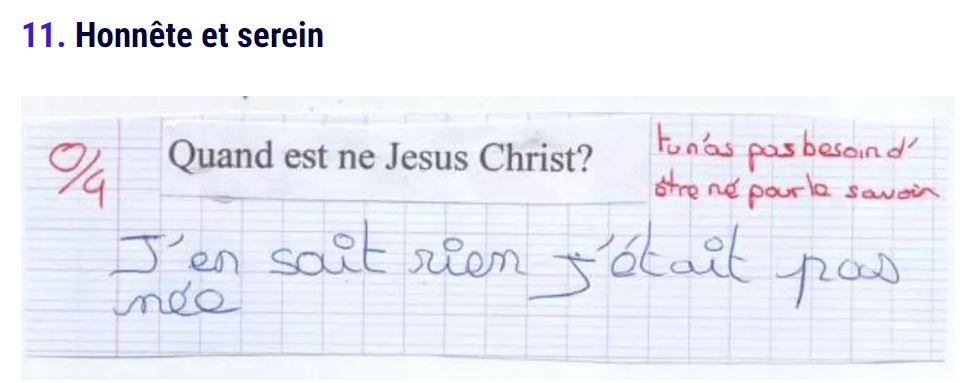 11. Honnête et serein
0/4
Quand est ne Jesus Christ?
tu n'as pas besoin d'
être né pour le savoin
J'en sait rien j'était pas
née